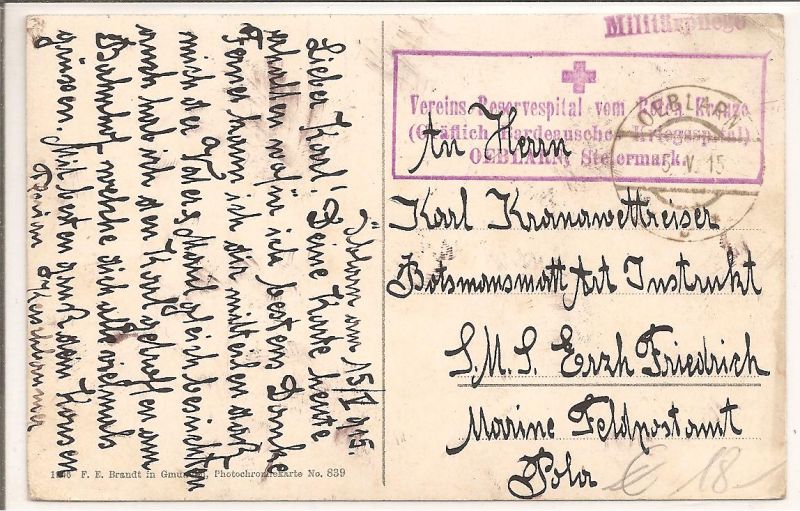 Militärpflege
Vereins-Reservespital vom Roten Kreuze
(Gräflich Bardeausches Kriegsspital)
OEBLARN, Steiermark.
OEBLARN
5. V. 15
An Herrn
Karl Kranawettreiser
Botsmansmatt Art Instrukt
S.M.S. Erzh Friedrich
Marine Feldpostamt
Pola
€ 18
Öblarn am 15/V 915.
Lieber Karl! Deine Karte heute
erhalten wofür ich bestens Danke
Ferner kann ich dir mitteilen daß
mich der
auch hab ich den Karl getroffen am
Bahnhof, welche dich alle vielmals
grüssen. Mit besten Gruß dein
F. E. Brandt in Gmunden, Photochromiekarte No. 839